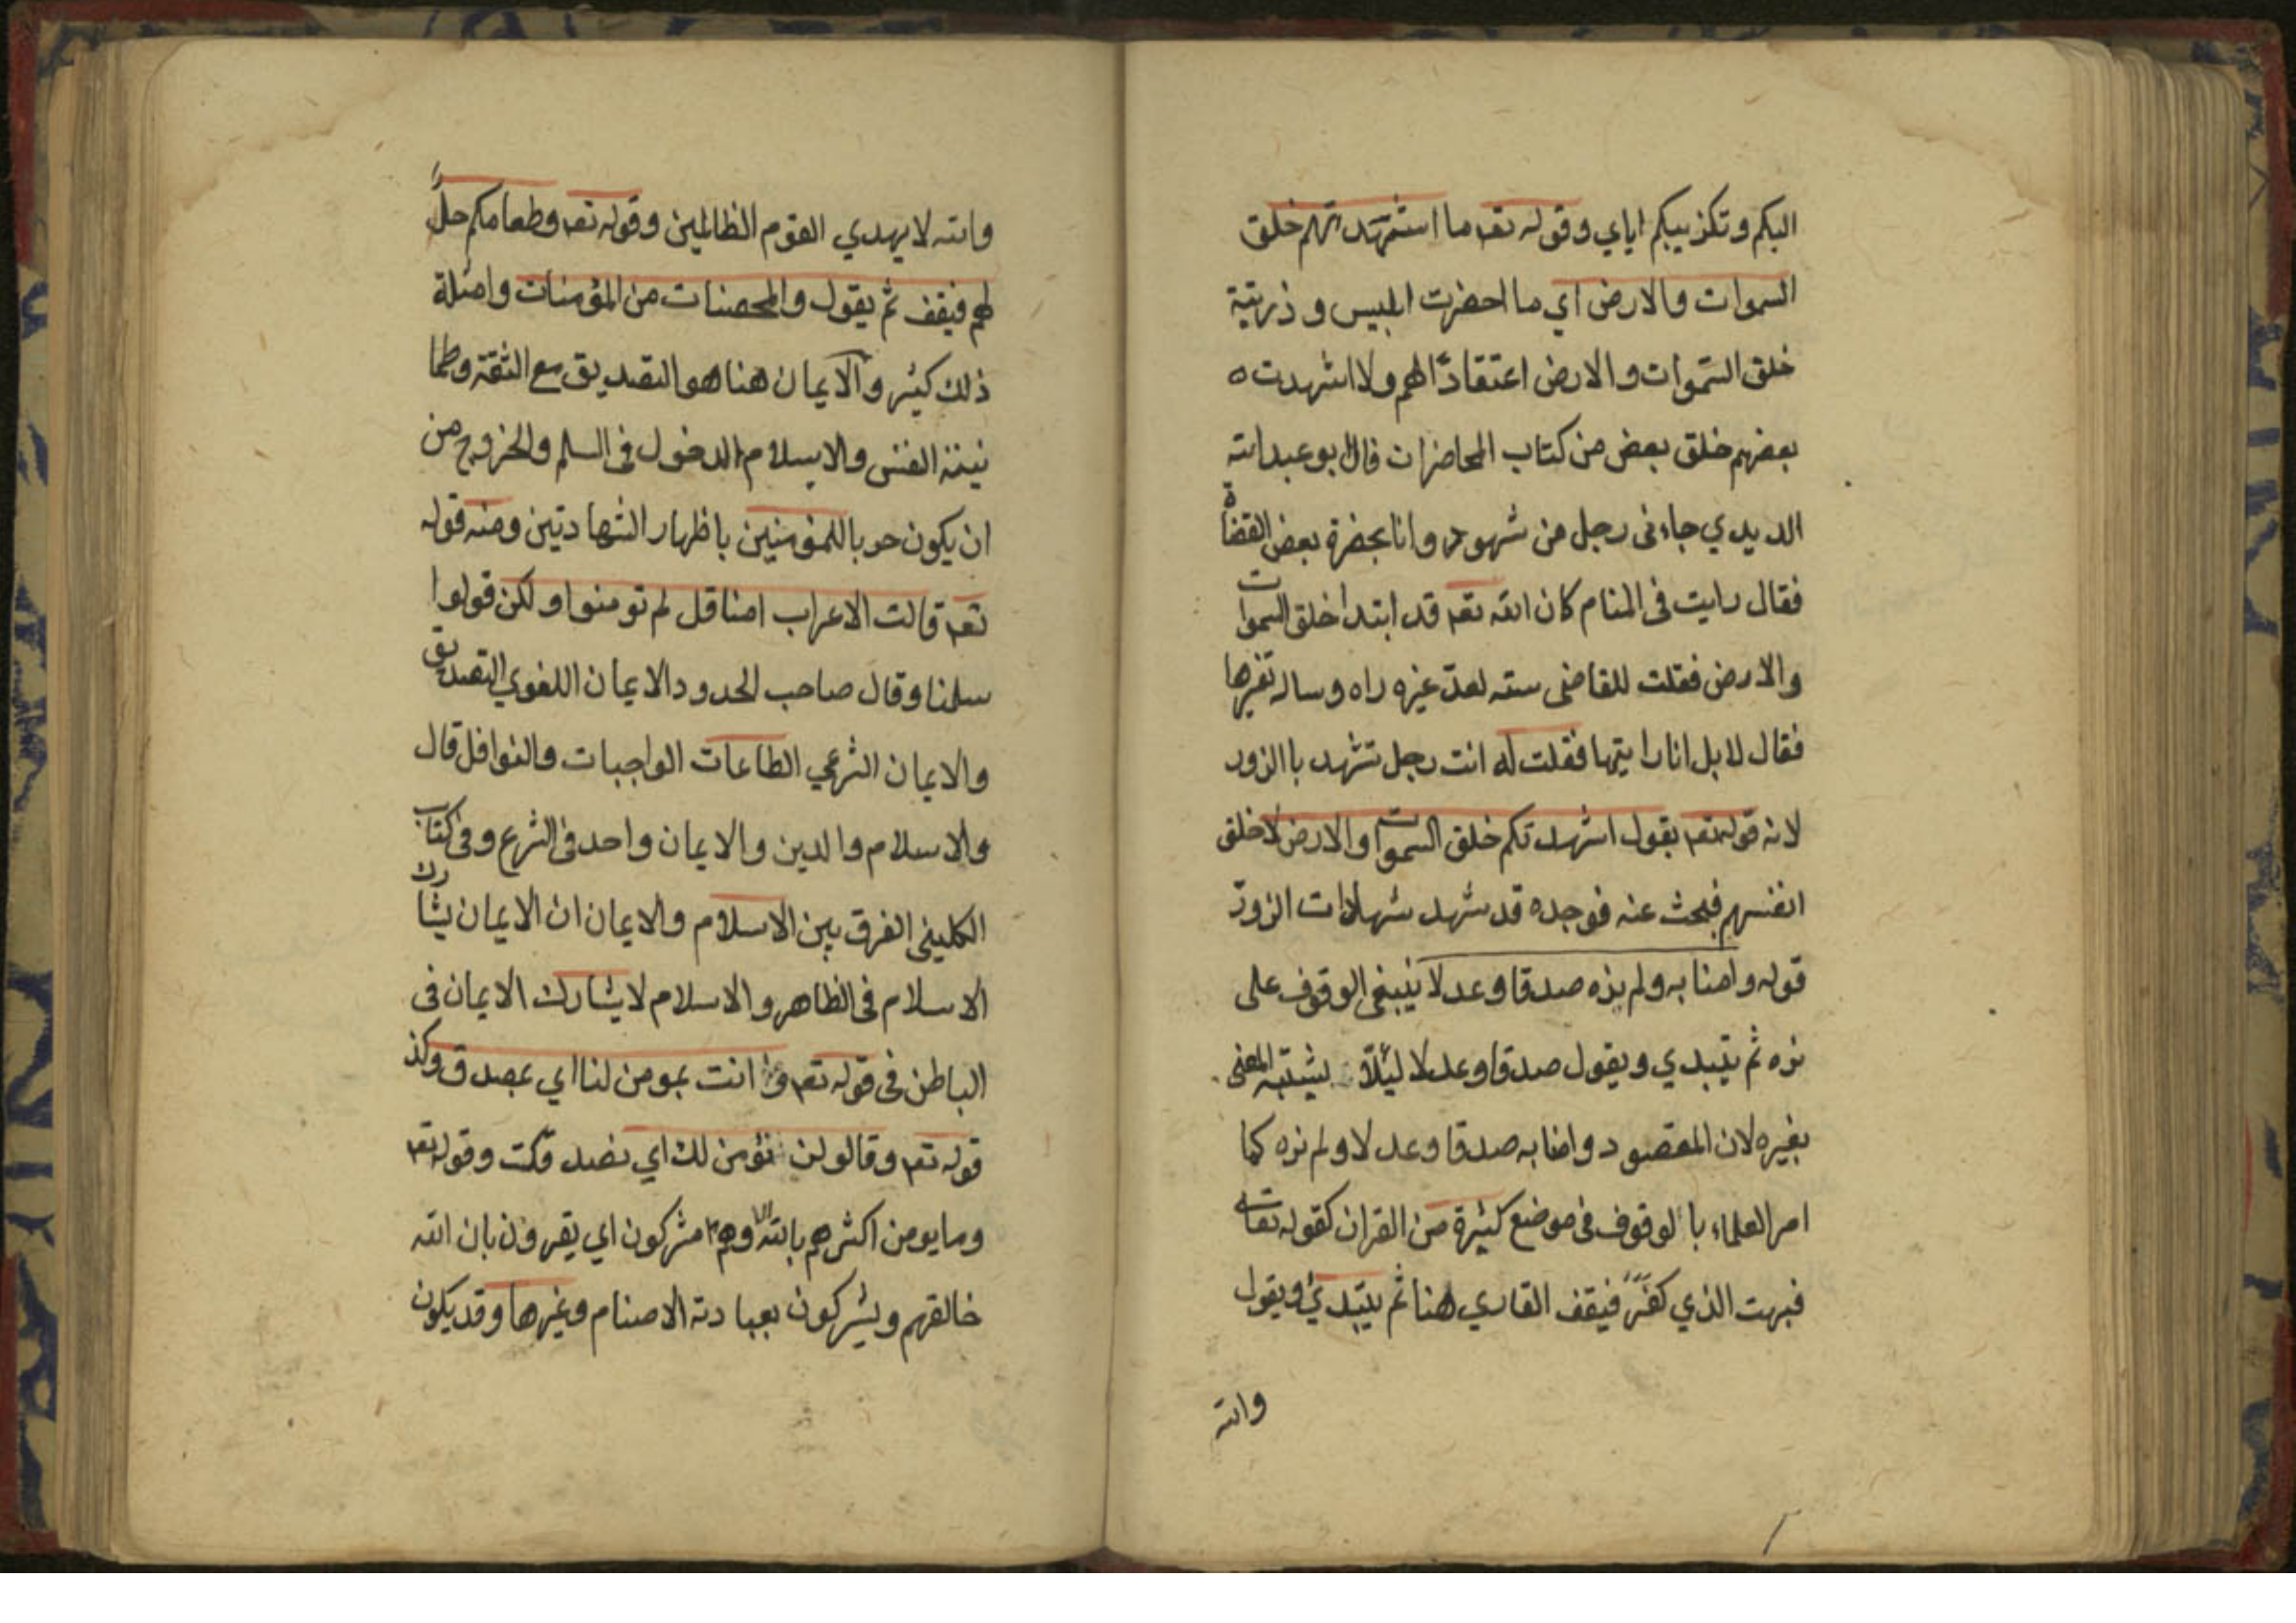 اليكم وتكذيبكم اياي وقوله تعم ما استشهدتهم خلق
السموات والارض اي ما احضرت ابليس وذريته
خلق السّموات والارض اعتقادًا لهم ولا اشهدت ه
بعضهم خلق بعض من كتاب المحاضرات قال ابو عبد الله
الديدي جاءنى رجل من شهود وانا بحضرة بعض القضاة
فقال رايت فى المنام كان الله تعم قد ابتدا خلق السموات
والارض فقلت للقاضى سته لعلّ غيره راه وساله تغيرها
فقال لا بل انا رايتها فقلت له انت رجل تشهد با الزور
لانه قوله تعم يقول اشهدتكم خلق السموات والارض لا خلق
انفسهم فبحث عنه فوجده قد شهد شهادات الزورّ
قوله وامنا به ولم نره صدقا وعدلا ينبغى الوقوف على
نره ثم يتبدي ويقول صدقا وعدلا ليئلّا يشتبه المعنى
بغيره لان المقصود وامنا به صدقا وعدلا ولم نره كما
امر العلماء با الوقوف فى موضع كثيرة من القران كقوله تعالى
فبهت الذي كفرً فيقف القاري هنا ثم يتبديئ ويقول
والله
والله لا يهدي القوم الظالمين وقوله تعم وطعامكم حلٌ
لهم فيقف ثم يقول والمحصنات من المؤمنات وامثلة
ذلك كثير والايمان هنا هو التصديق مع الثقة وطما
نينة النفس والاسلام الدخول فى السلم والخروج من
ان يكون حربا للمؤمنين باظهار الشهادتين ومنه قوله
تعم قالت الاعراب امنا قل لم تومنوا ولكن قولوا
سلمنا وقال صاحب الحدود الايمان اللغوي التصديق
والايمان الشرعي الطاعات الواجبات والنوافل قال
والاسلام والدين والايمان واحد فى الشرع وفى كتاب
الكلينى الفرق بين الاسلام والايمان ان الايمان يشارك
الاسلام فى الظاهر والاسلام لا يشارك الايمان فى
الباطن فى قوله تعم وما انت بمومن لنا اي بمصدق وكذ
قوله تعم وقالو لن نؤمن لك اي نصدقك وقوله تعم
وما يومن اكثرهم بالله الا وهم مشركون اي يقرون بان الله
خالقهم ويشركون بعبادته الاصنام وغيرها وقد يكون